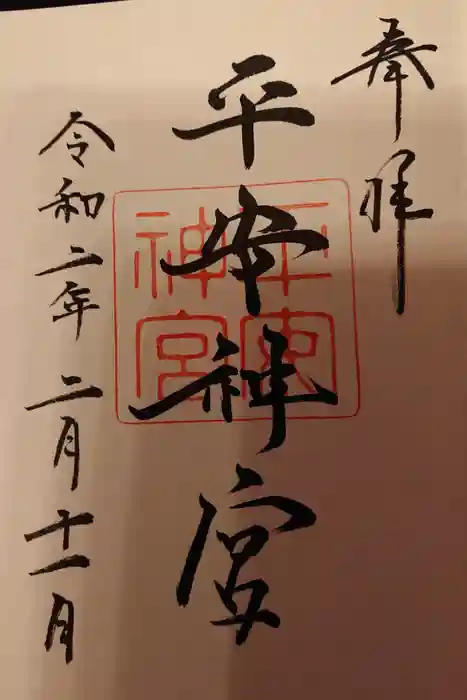 奉拝
平安神宮
平安神宮
令和二年二月十一日